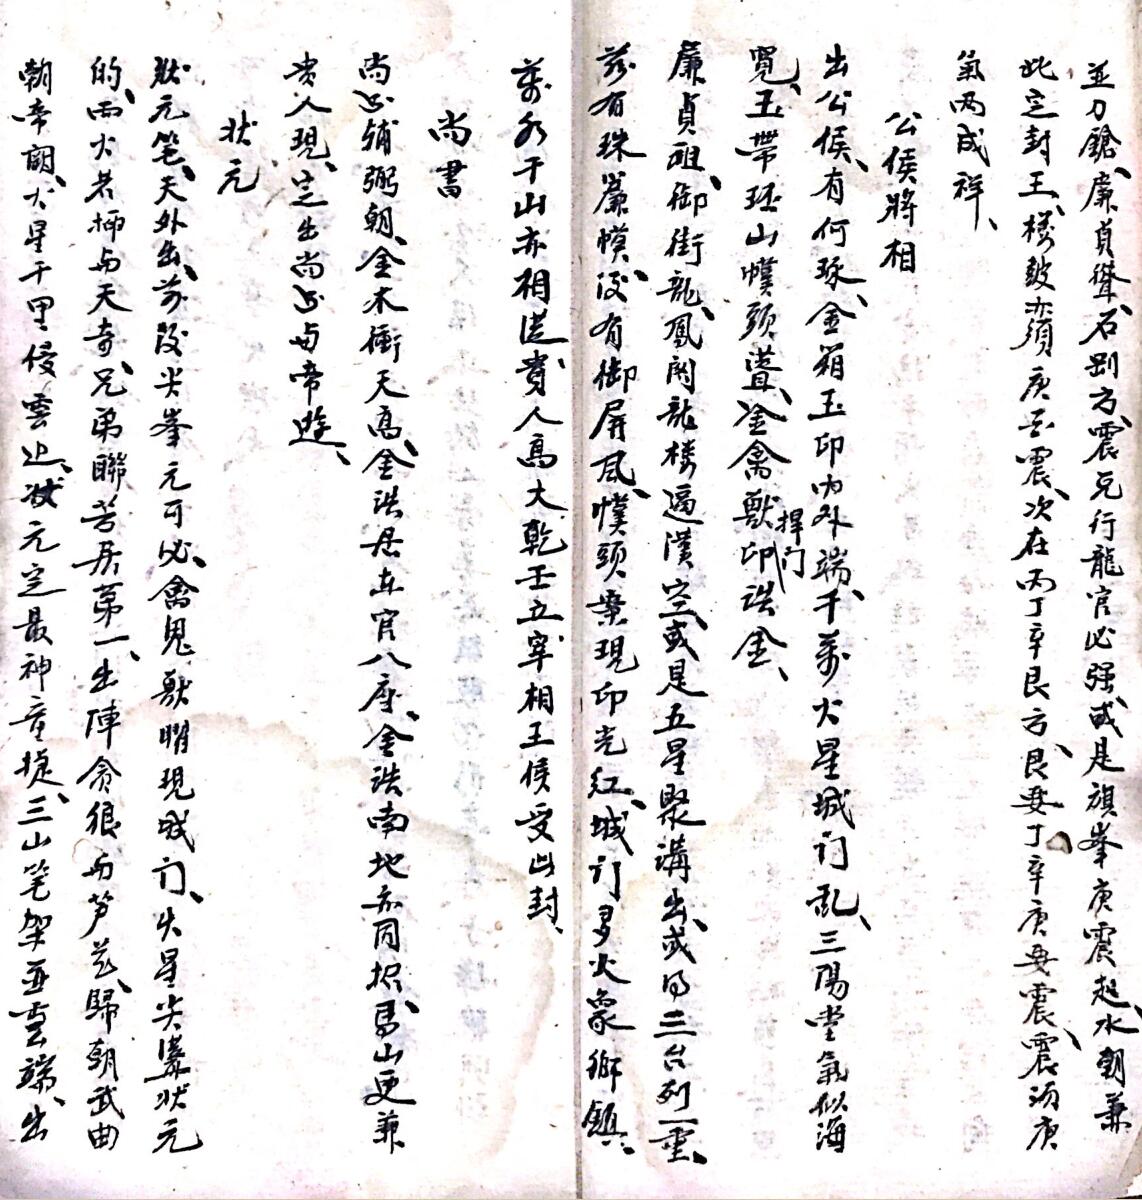 並刀鎗、廉貞聳、石剔方、震兌行龍官必强、或是旗峯庚震起、水朝兼
此定封王、樓皷亦須庚與震、次在丙丁辛艮方、艮要丁辛庚要震、震須庚
氣两成祥、
公侯將相
出公侯、有何琢、金箱玉印内外端、千萬火星城门乱、三陽堂氣似海
寛、玉帶珏山幞頭聳、金禽獸印誥金、
捍门
廉貞祖、御街龍、鳳閣龍楼逼漢空、或是五星聚講出、或为三台列一重、
若有珠簾幙、後有御屏風、幞頭案現印光紅、城门多火象鄉鎮、
萬水千山亦相送、貴人高大乾壬立、宰相王侯受此封、
尚書
尚书辅弼朝、金木衝天高、金誥居在官八座、金誥南地亦同㨿、馬山更兼
贵人現、定出尚书与帝遊、
状元
状元笔、天外出、前後尖峯元可必、禽鬼獸曜現城门、火星尖溱状元
的、两火若插与天奇、兄弟聯芳居第一、出陣貪狼与芦花、歸朝武曲
朝帝闕、火星千里侵雲上、状元定最神童捷、三山笔架並雲端、出